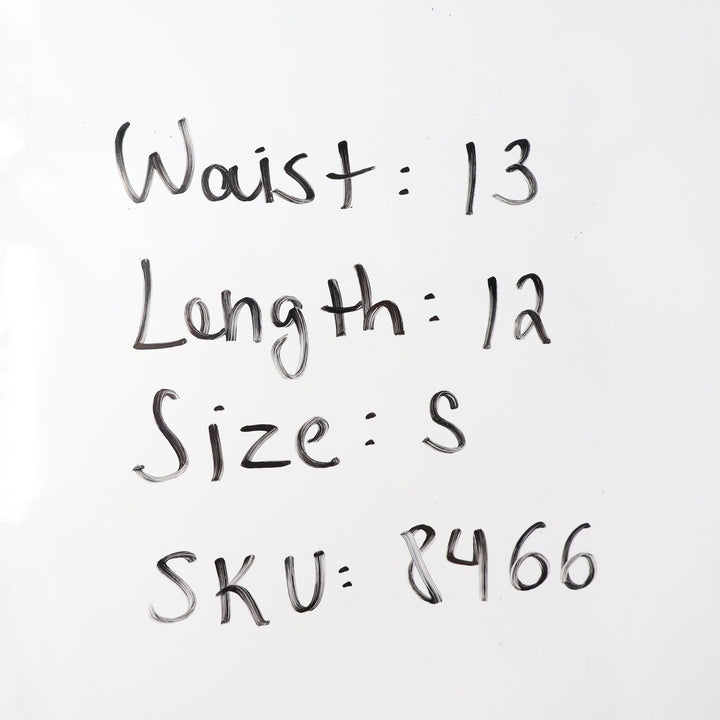 Waist: 13
Length: 12
Size: S
SKU: 8466